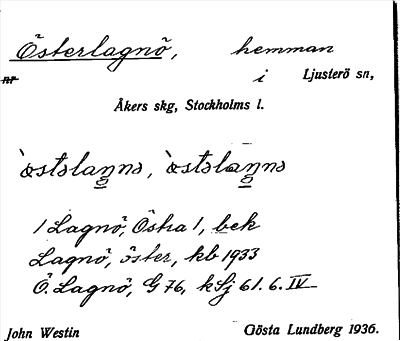 Österlagnö, hemman
nr i Ljusterö sn,
Åkers skg, Stockholms l.
`östəlaŋnə, `östəlaŋnə
/ Lagnö, Östra /, bek
Lagnö, öster, kb 1933
Ö. Lagnö, G 76, k Sj 61. 6. IV
John Westin Gösta Lundberg 1936.